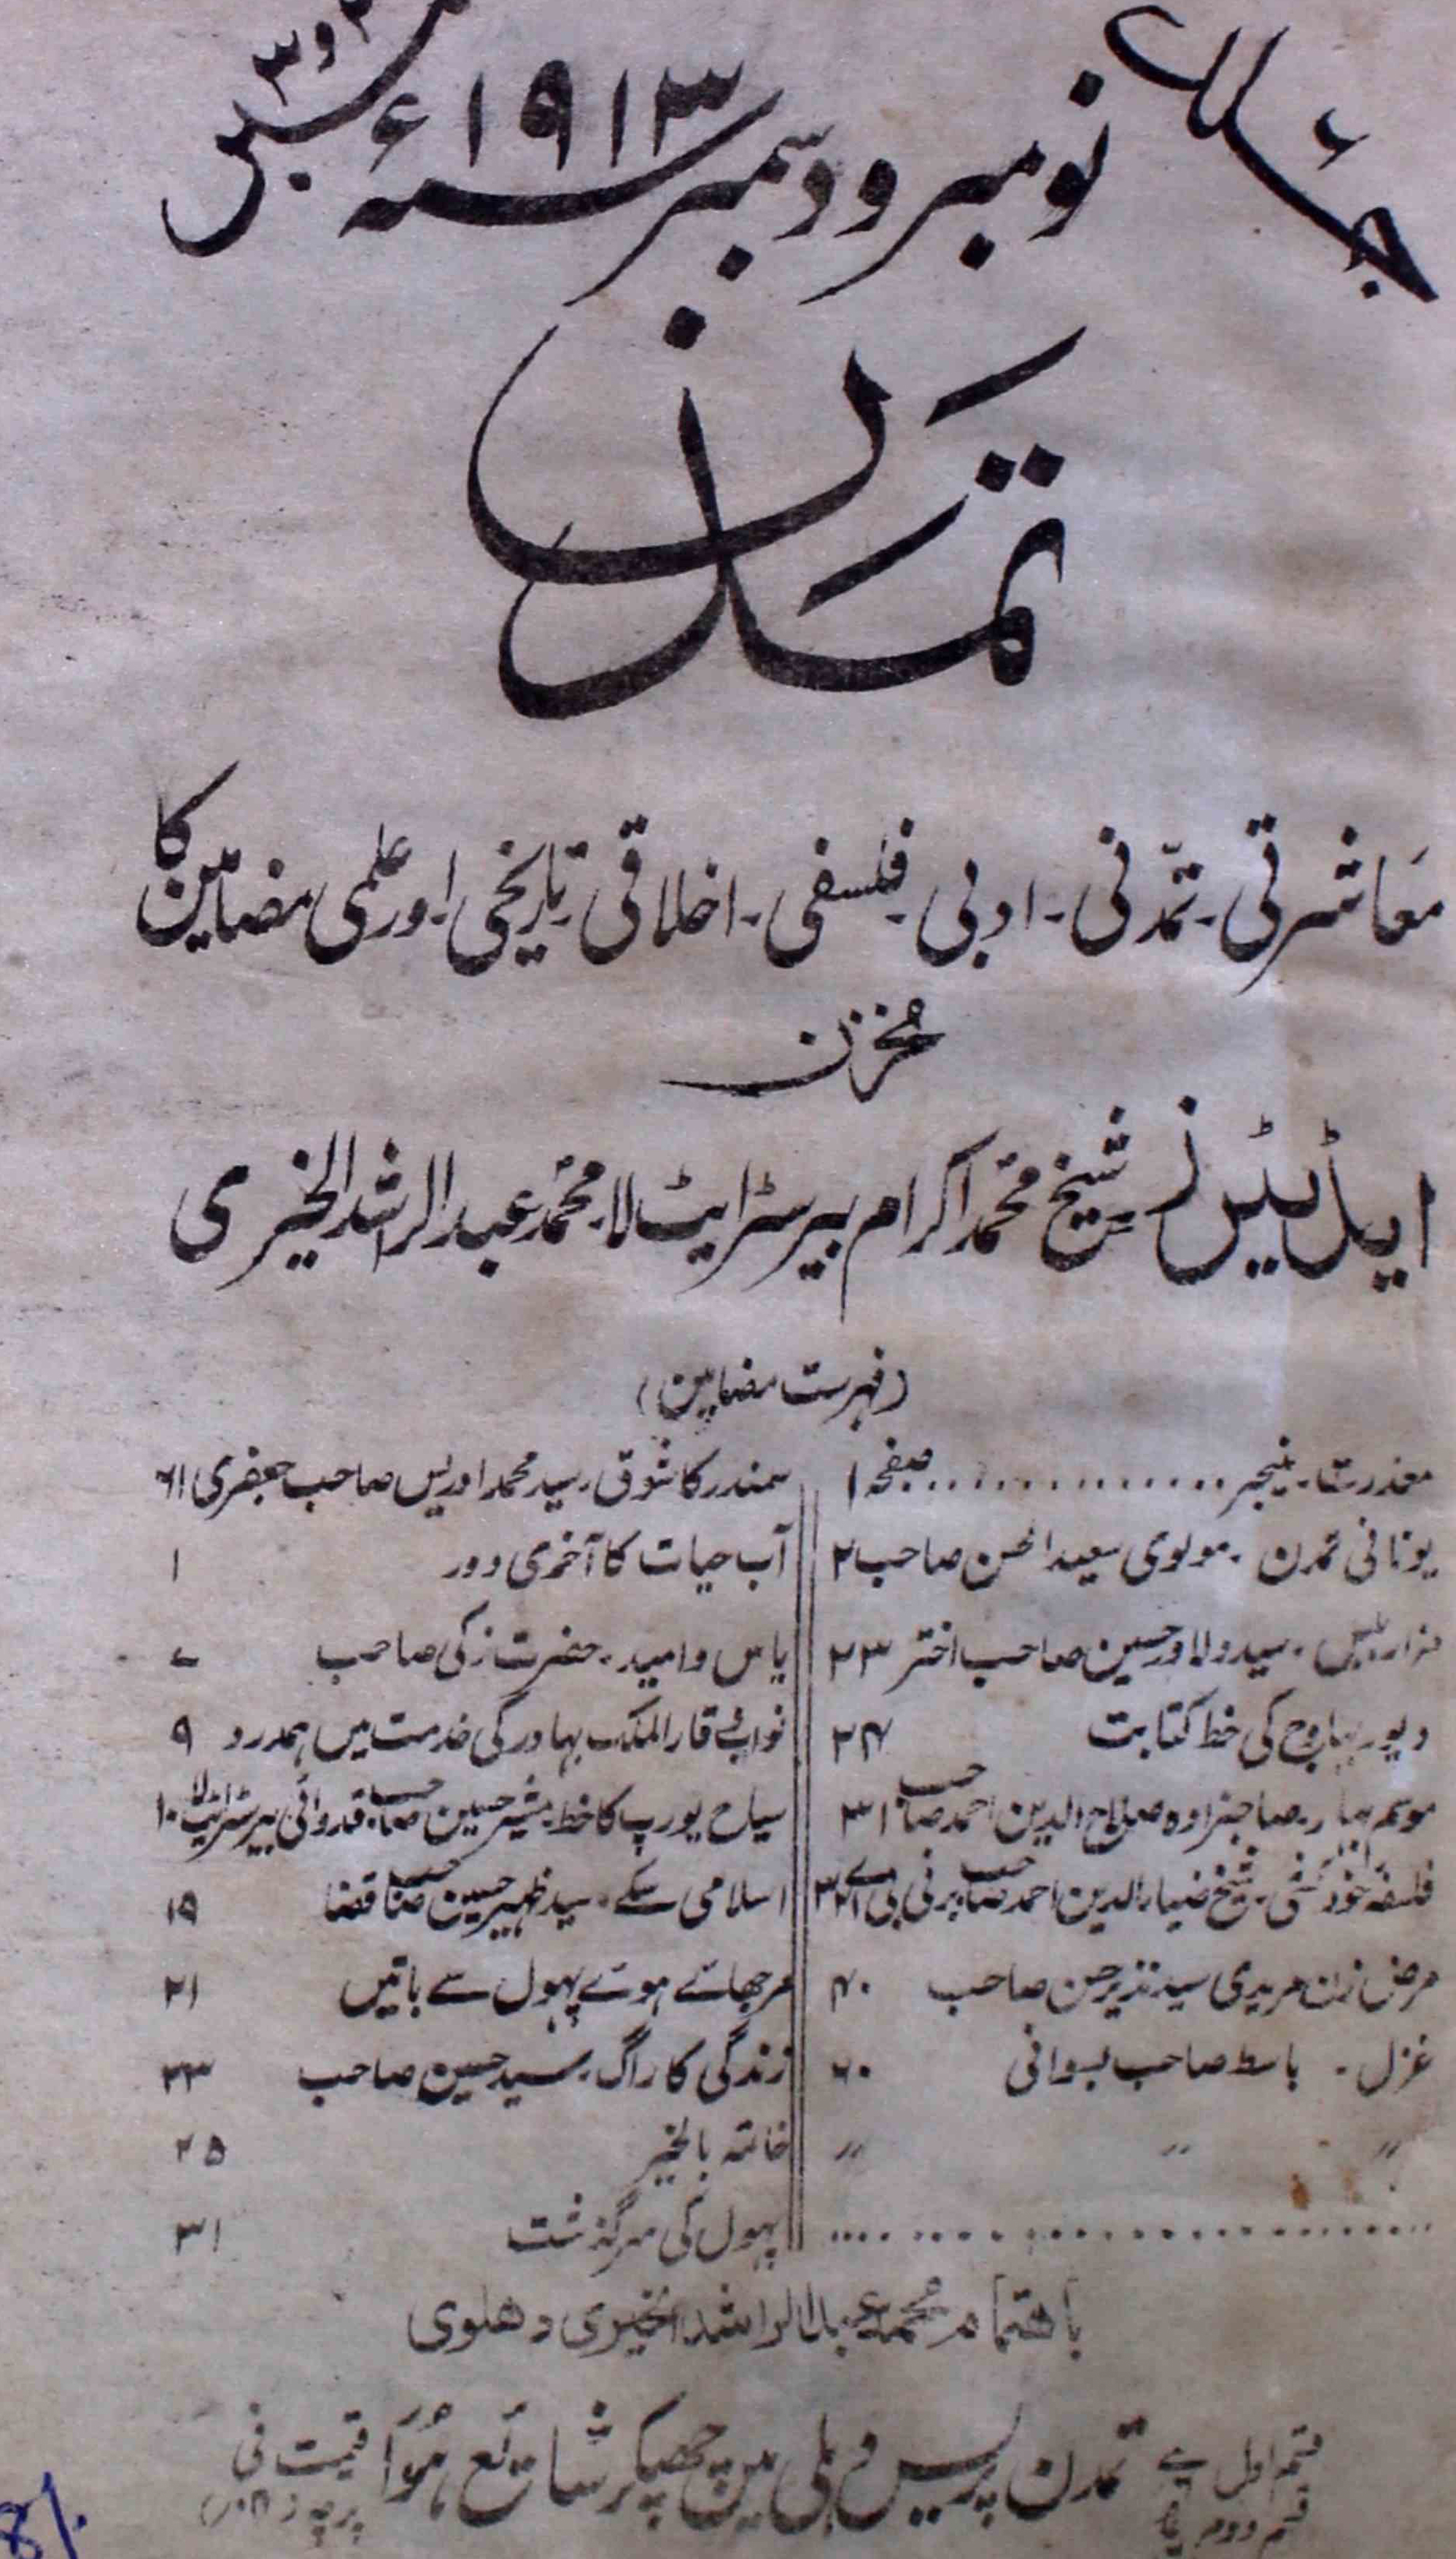 جلد
نومبر و دسمبر سنہ ۱۹۱۳ء
نمبر ۲ و ۳
تمدن
معاشرتی - تمدنی - ادبی - فلسفی - اخلاقی - تاریخی - اور علمی مضامین کا
مخزن
ایڈیٹرز - شیخ محمد اکرام بیرسٹرایٹ لا - محمد عبد الراشد الخیری
(فہرست مضامین)
معذرت - منیجر .............. صفحہ ۱
یونانی تمدن - مولوی سعید الحسن صاحب ۲
سید دلاور حسین صاحب اختر ۲۳
کی خط کتابت ۲۴
موسم بہار - صاحبزادہ صلاح الدین احمد صاحب ۳۱
فلسفہ خودکشی - شیخ ضیاء الدین احمد صاحب برنی بی اے ۳۲
مرض زن مریدی سید نذیر حسن صاحب ۴۰
غزل - باسط صاحب بسوانی ۶۰
〃 〃 〃
..............
سمندر کا شوق - سید محمد ادریس صاحب جعفری ۶۱
آب حیات کا آخری دور ۱
یاس و امید - حضرت زکی صاحب ۷
نواب وقار الملک بہادر کی خدمت میں ہمدرد ۹
سیاح یورپ کا خط - مشیر حسین صاحب قدوائی بیرسٹرایٹ لا ۱۰
اسلامی سکے - سید ظہیر حسین صاحب قضا ۱۹
مرجھائے ہوئے پہول سے باتیں ۲۱
زندگی کا راگ - سید حسین صاحب ۲۳
خاتمہ بالخیر ۲۵
پہول کی سرگذشت ۳۱
باہتمام محمد عبد الراشد الخیری دہلوی
تمدن پریس دہلی میں چھپکر شائع ہوا
قسم اول
قسم دوم
قیمت فی
پرچہ
8/.